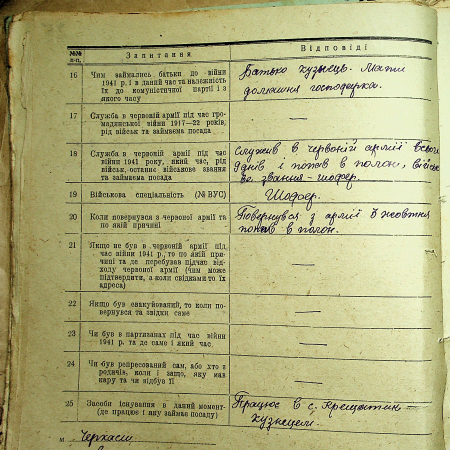 №№ п-п. Запитання Відповіді
16 Чим займались батьки до війни
1941 р. і в даний час та належність
їх до комуністичної партії і з
якого часу
Батько кузнець. Мати
домашня господарка.
17 Служба в червоній армії під час гро-
мадянської війни 1917—22 років,
рід військ та займаєма посада
—
18 Служба в червоній армії під час
війни 1941 року, який час, рід
військ, останнє військове звання
та займаєма посада
Служив в червоній армії
днів і попав в полон,
звання - шофер.
19 Військова спеціяльність (№ ВУС)
Шофер.
20 Коли повернувся з червоної армії та
по якій причині
Повернувся з армії 8 жовтня
попав в полон.
21 Якщо не був в червоній армії під
час війни 1941 р., то по якій при-
чині та де перебував підчас від-
ходу червоної армії (чим може
підтвердити, а коли свідками то їх
адреса)
—
22 Якщо був евакуйований, то коли по-
вернувся та звідки саме
—
23 Чи був в партизанах під час війни
1941 р. та де саме і який час
—
24 Чи був репресований сам, або хто з
родичів, коли і защо, яку мав
кару та чи відбув її
—
25 Засоби існування в даний момент-
(де працює і яку займає посаду)
Працює в с.
кузнецем.
м. Черкаси